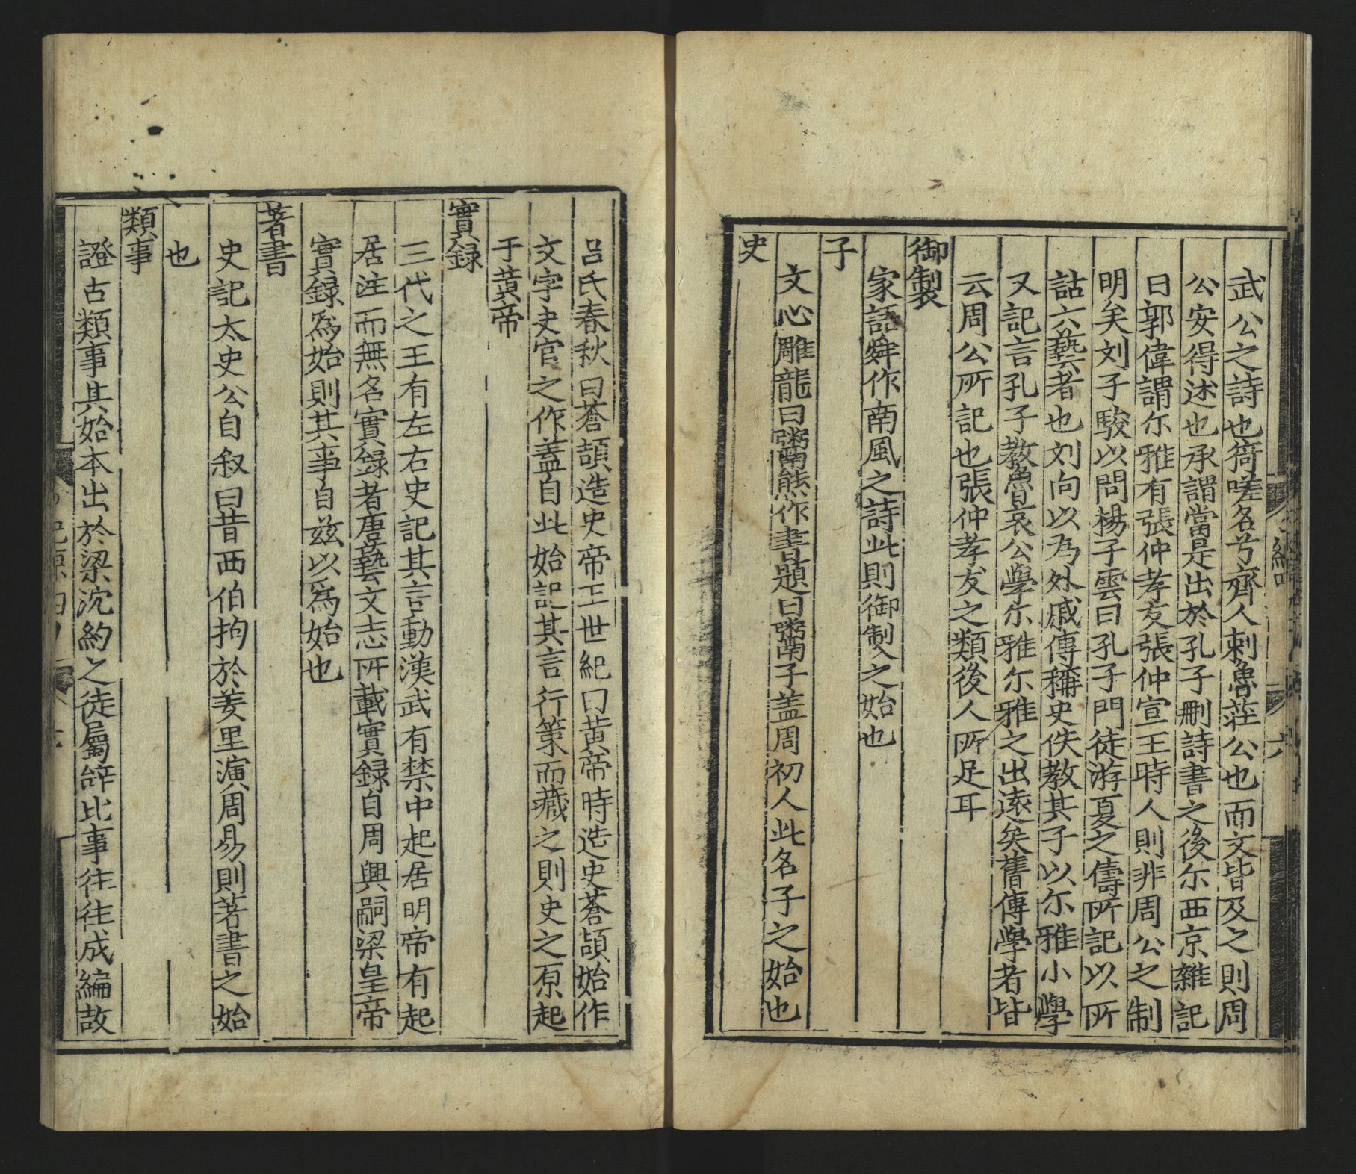 武公之詩也猗嗟名兮齊人刺魯莊公也而文皆及之則周
公安得述也承謂當是出於孔子刪詩書之後尓西京雜記
曰郭偉謂尓雅有張仲孝友張仲宣王時人則非周公之制
明矣刘子駿以問楊子雲曰孔子門徒游夏之儔所記以所
詁六藝者也刘向以為外戚傳稱史佚教其子以尓雅小學
又記言孔子教魯哀公學尓雅尓雅之出遠矣舊傳學者皆
云周公所記也張仲孝友之類後人所足耳
御製
家語舜作南風之詩此則御製之始也
子
文心雕龍曰鬻熊作書題曰鬻子盖周初人此名子之始也
史
呂氏春秋曰蒼頡造史帝王世紀曰黃帝時造史蒼頡始作
文字史官之作蓋自此始記其言行策而藏之則史之原起
于黃帝
實録
三代之王有左右史記其言動漢武有禁中起居明帝有起
居注而無名實録者唐藝文志所載實録自周興嗣梁皇帝
實録為始則其事自茲以為始也
著書
史記太史公自叙曰昔西伯拘於羑里演周易則著書之始
也
類事
證古類事其始本出於梁沈約之徒屬辝比事往往成編故